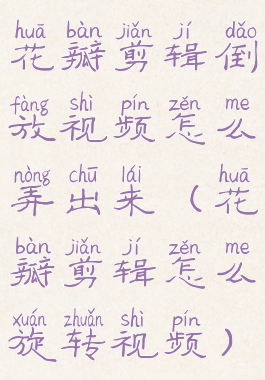 huā bàn jiǎn jí dǎo
花瓣剪辑倒
fàng shì pín zěn me
放视频怎么
nòng chū lái huā
弄出来（花
bàn jiǎn jí zěn me
瓣剪辑怎么
xuán zhuǎn shì pín
旋转视频）